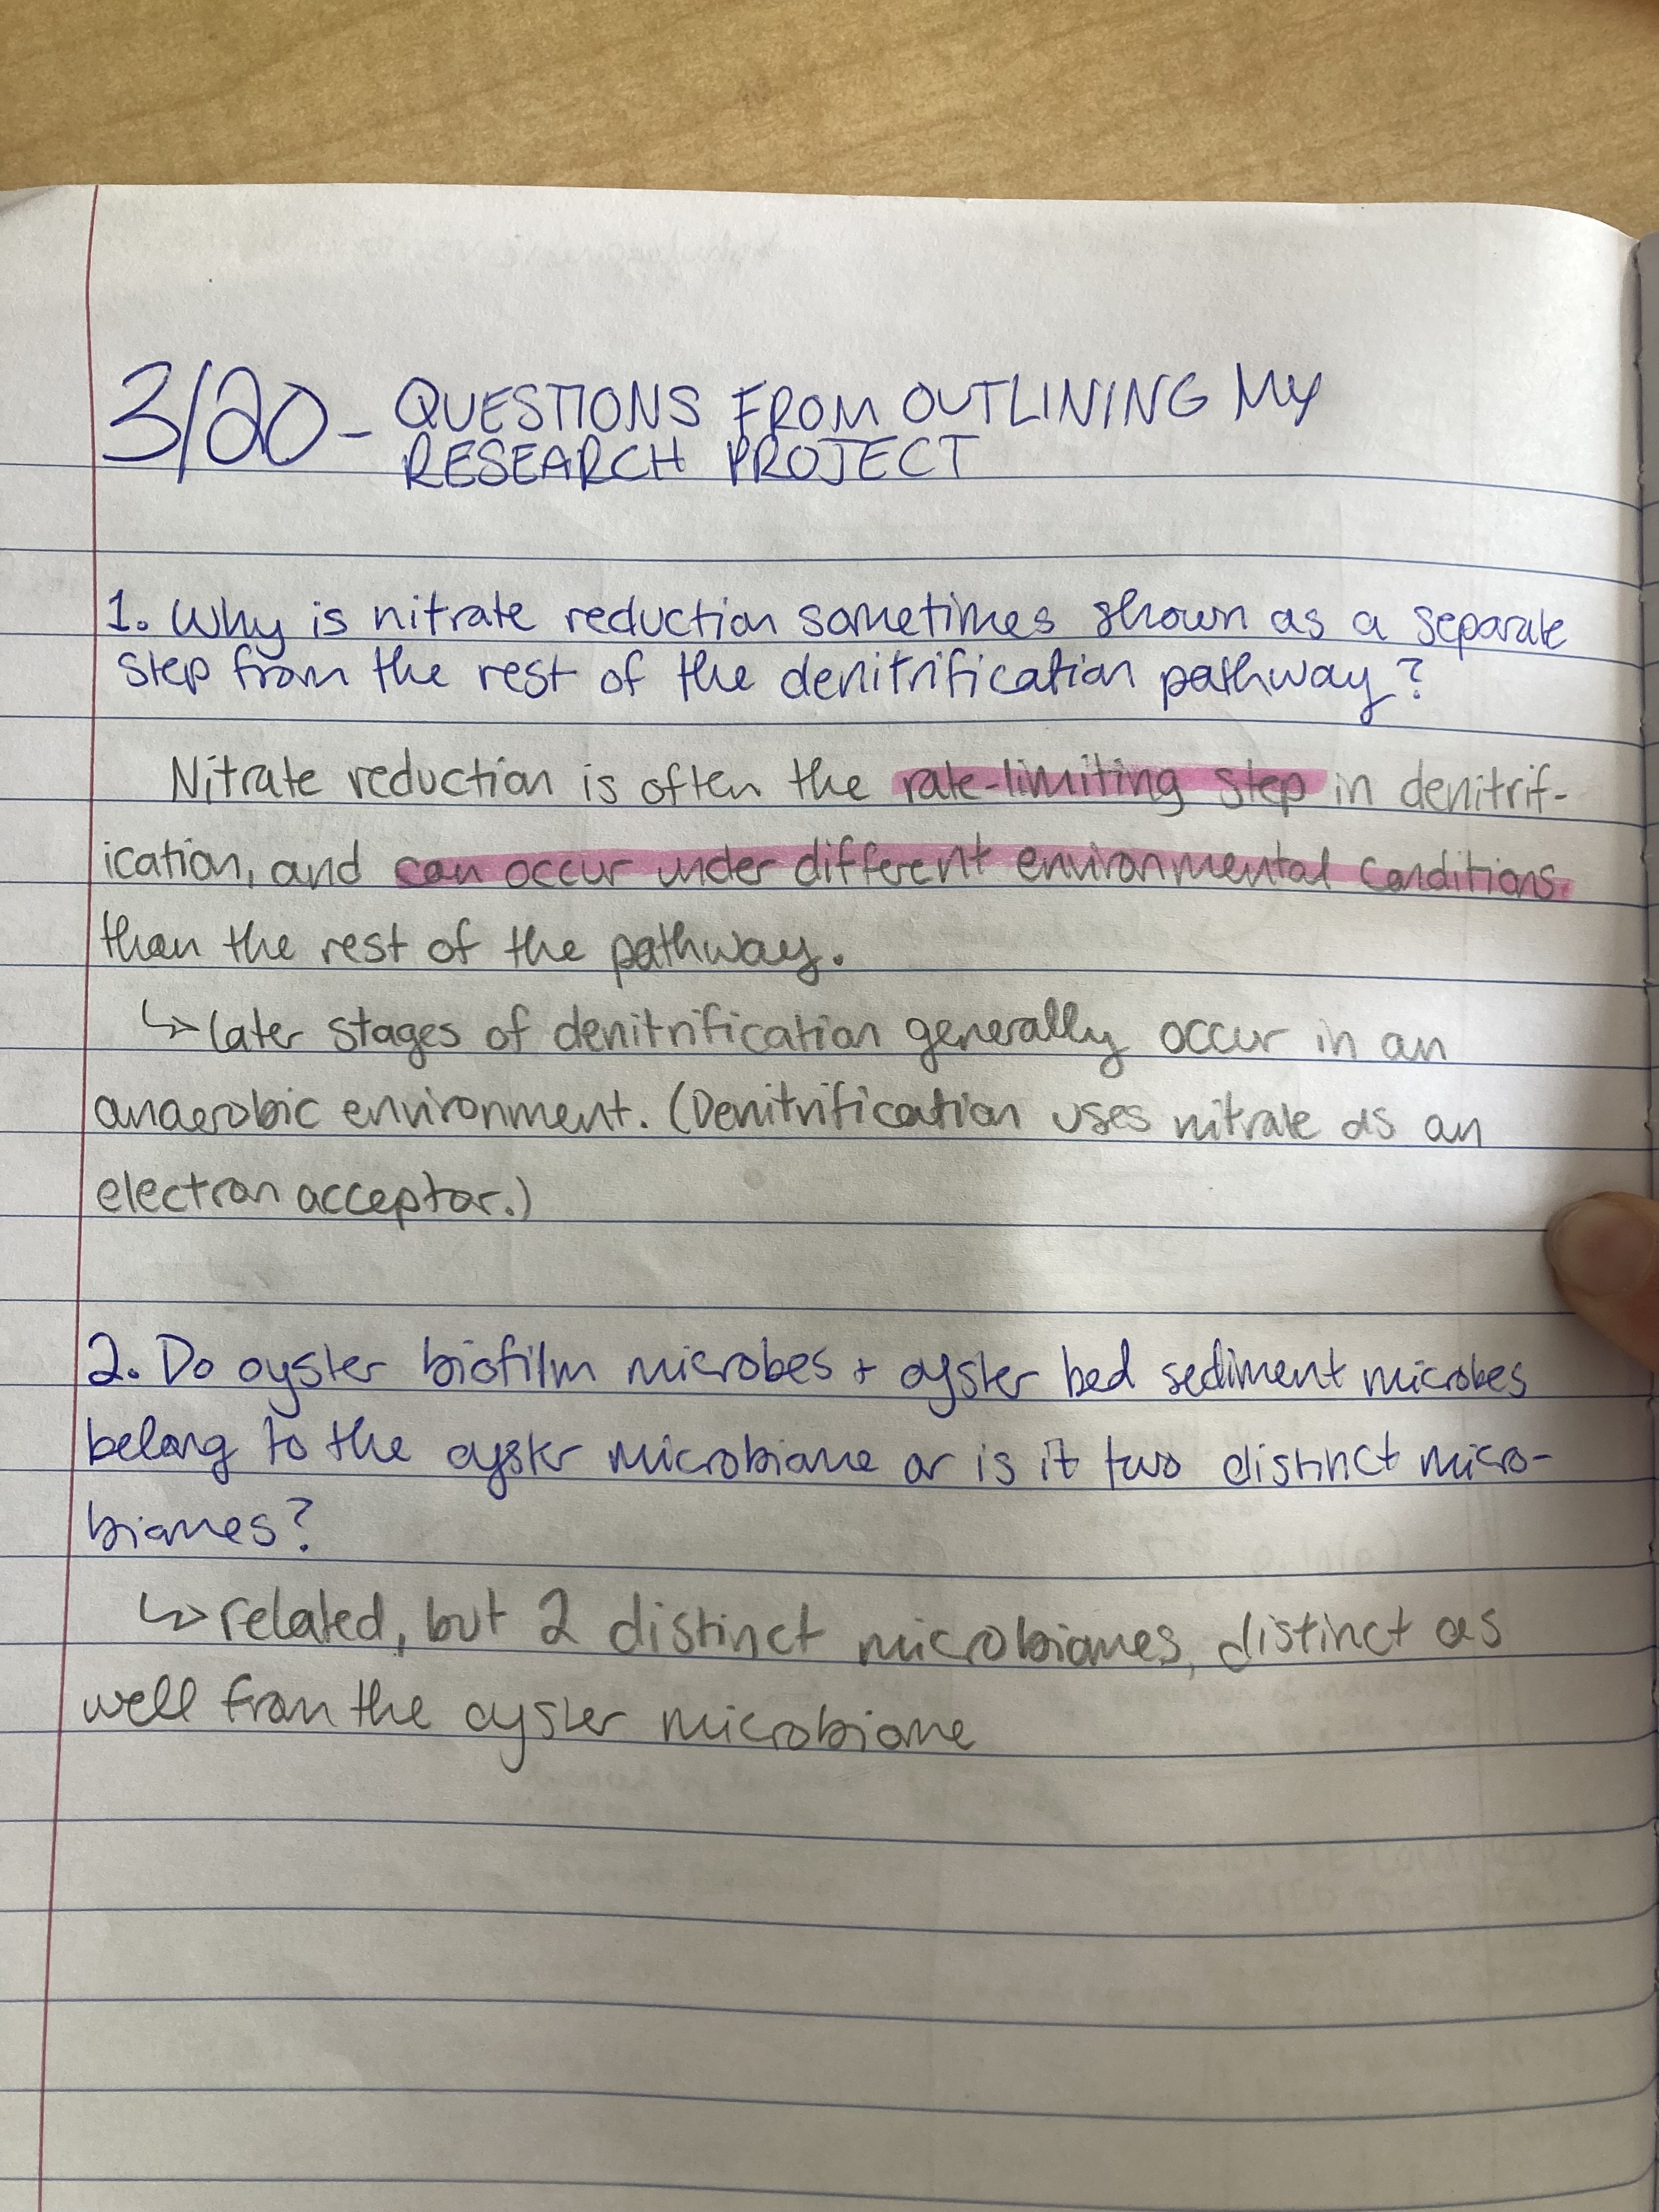 3/20 - QUESTIONS FROM OUTLINING MY
RESEARCH PROJECT
1. Why is nitrate reduction sometimes shown as a separate
step from the rest of the denitrification pathway?
Nitrate reduction is often the rate-limiting step in denitrif-
ication, and can occur under different environmental conditions
than the rest of the pathway.
↳ later stages of denitrification generally occur in an
anaerobic environment. (Denitrification uses nitrate as an
electron acceptor.)
2. Do oyster biofilm microbes + oyster bed sediment microbes
belong to the oyster microbiome or is it two distinct micro-
biomes?
↳ related, but 2 distinct microbiomes, distinct as
well from the oyster microbiome